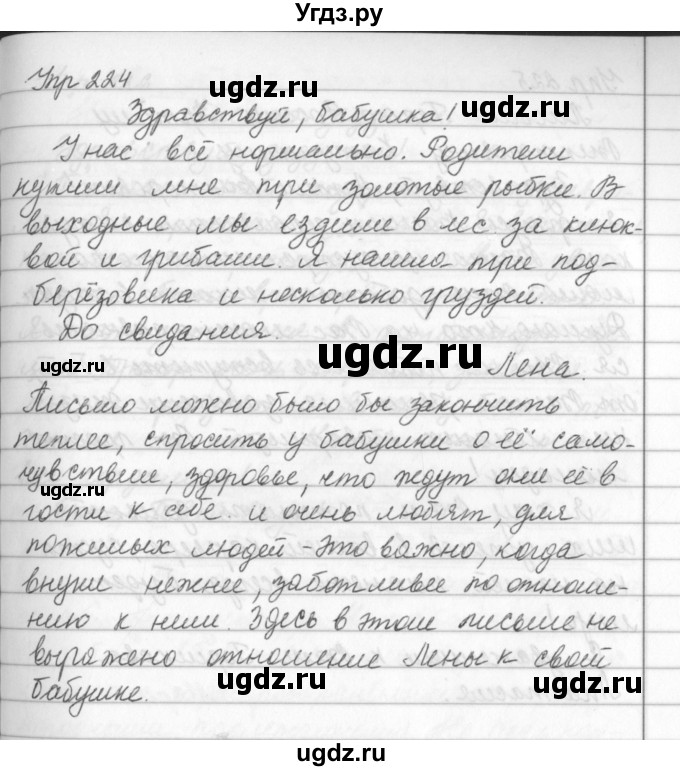 Угдз.ру
Упр 224
ugdz.ru
ugdz.ru
Здравствуй, бабушка!
У нас всё нормально. Родители
купили мне три золотые рыбки. В
ugdz.ru
ugdz.ru
выходные мы ездили в лес за клюк-
вой и грибами. Я нашла три под-
берёзовика и несколько груздей.
До свидания.
ugdz.ru
ugdz.ru
Лена.
Письмо можно было бы закончить
теплее, спросить у бабушки о её само-
чувствии, здоровье, что ждут они её в
ugdz.ru
гости к себе и очень любят, для
пожилых людей - это важно, когда
внуки нежнее, заботливее по отноше-
нию к ним. Здесь в этом письме не
выражено отношение Лены к своей
бабушке.
ugdz.ru
ugdz.ru
ugdz.ru